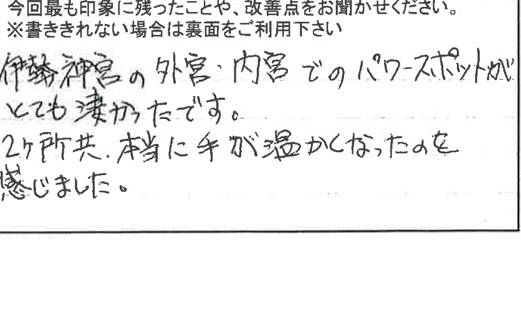 今回最も印象に残ったことや、改善点をお聞かせください。
※書ききれない場合は裏面をご利用下さい
伊勢神宮の外宮・内宮でのパワースポットが
とても凄かったです。
2ヶ所共、本当に手が温かくなったのを
感じました。